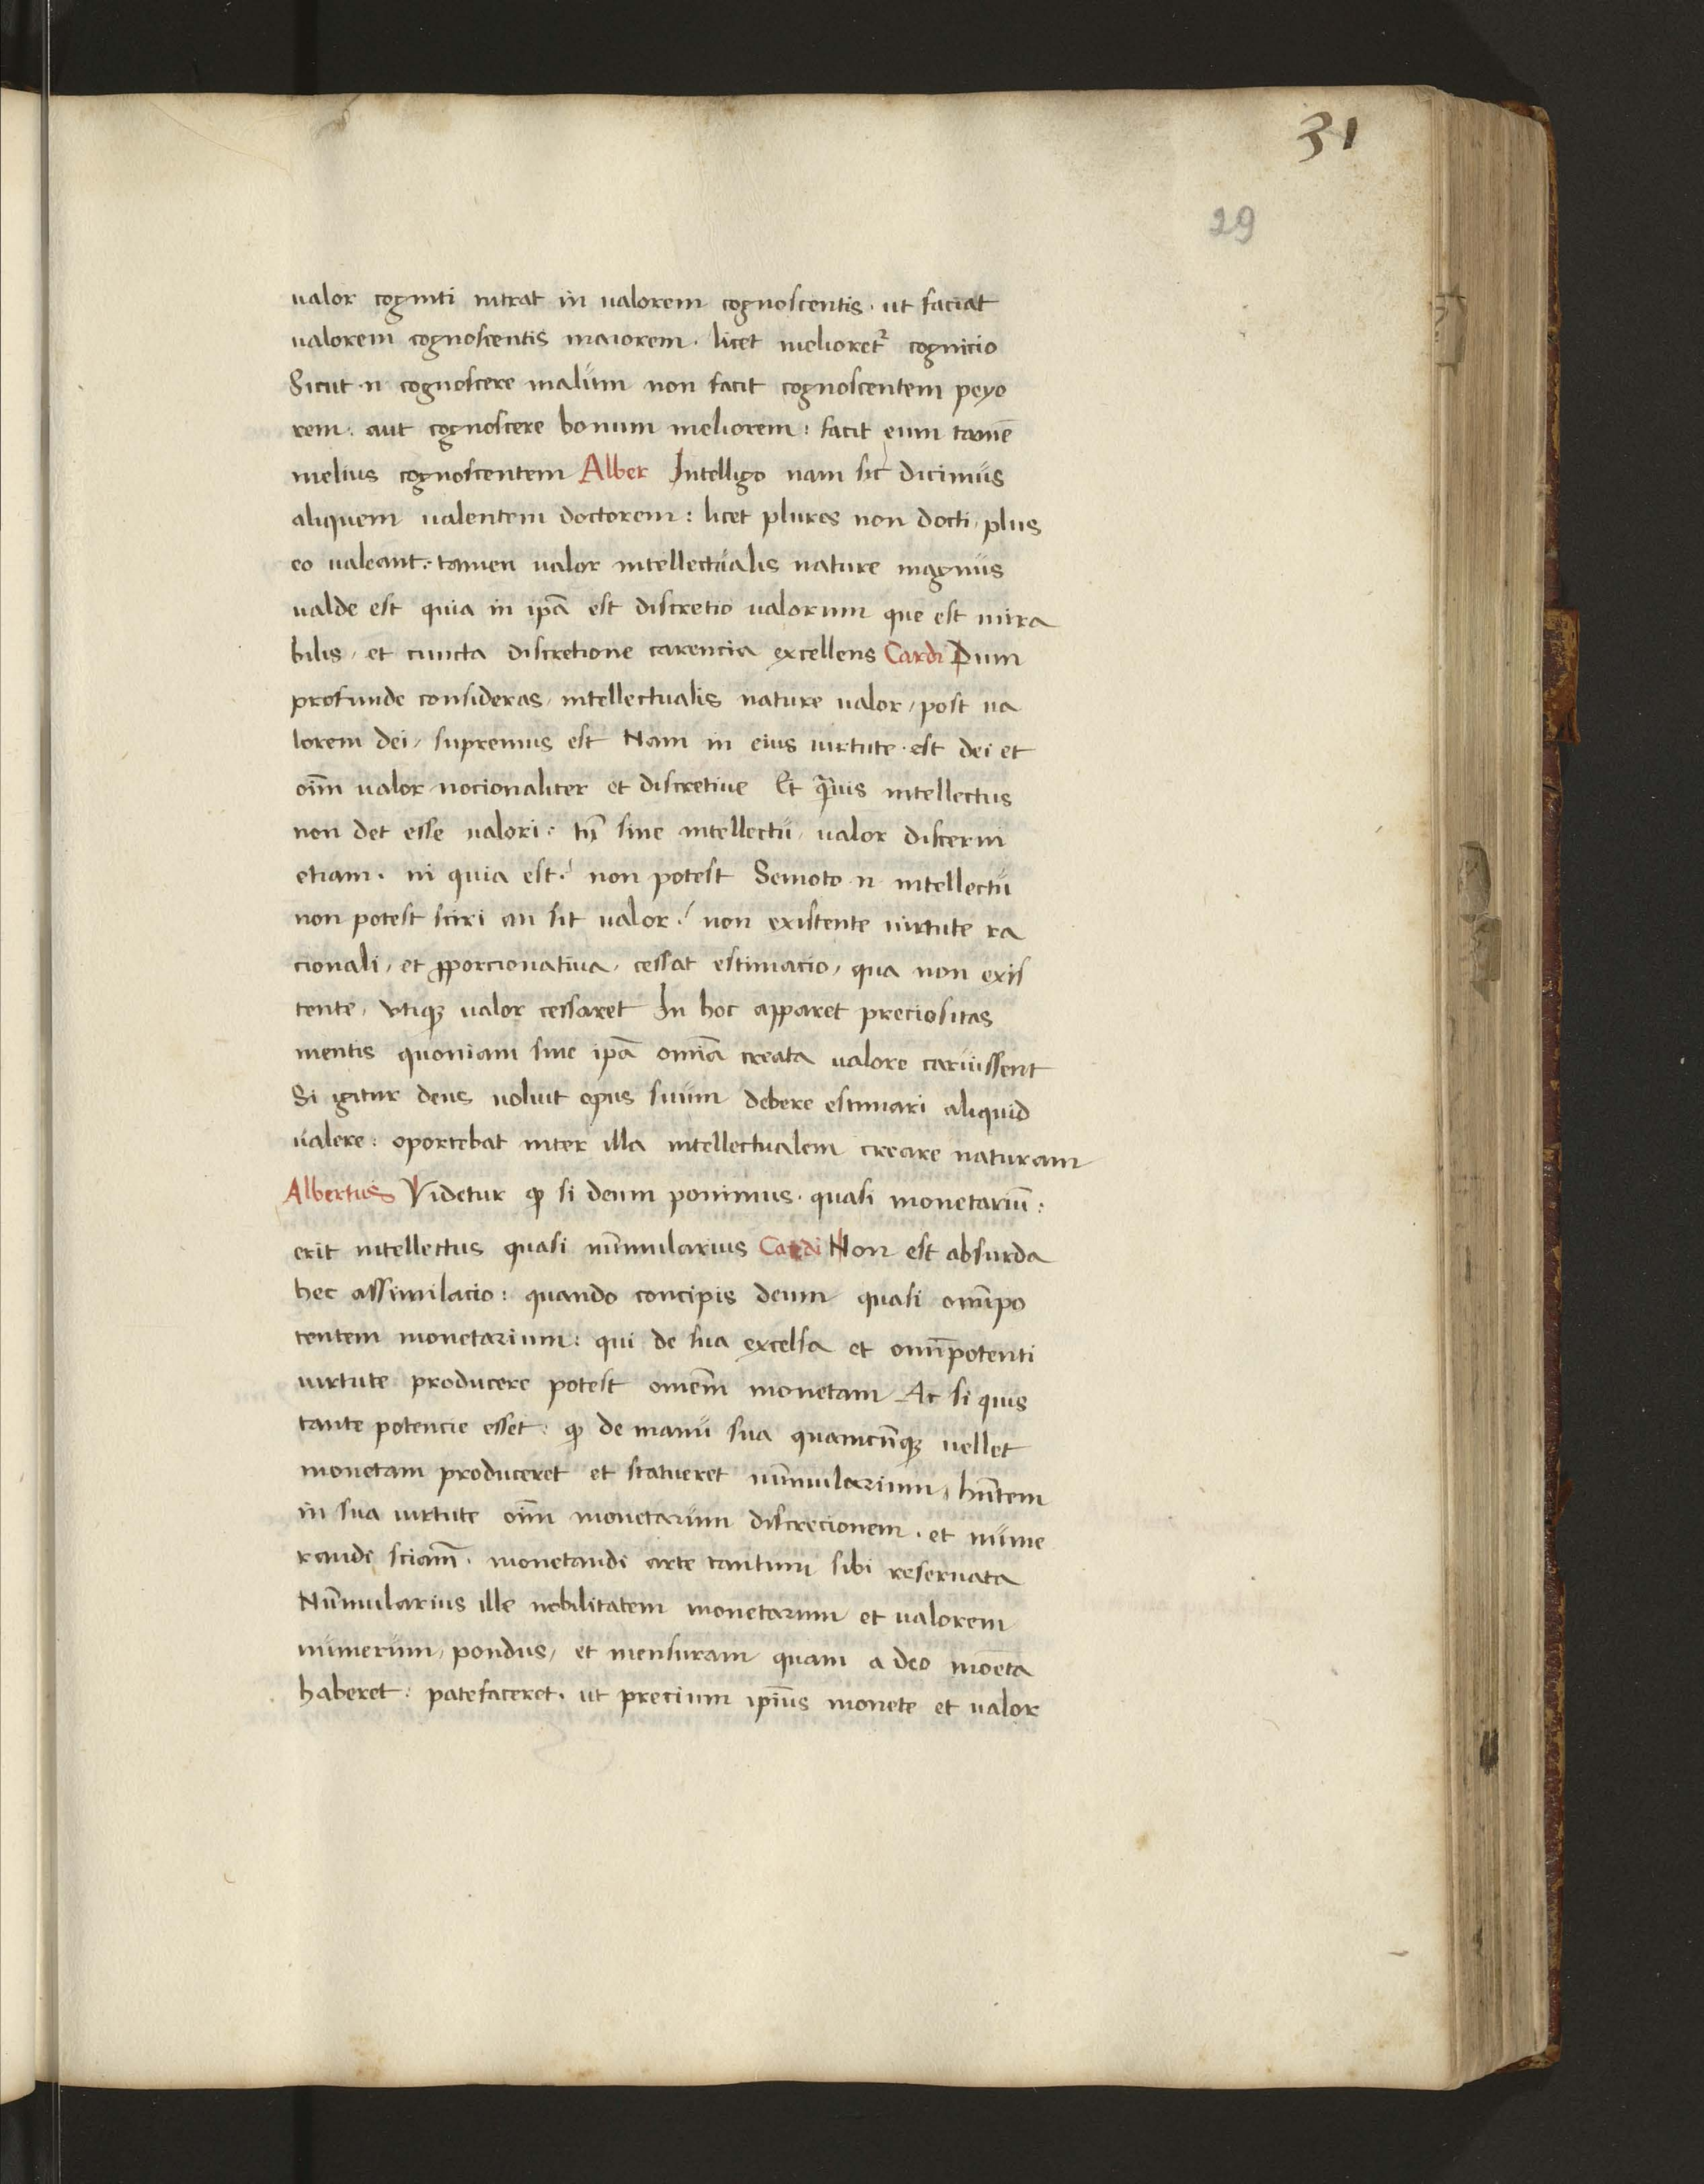 31
29
valor cogniti intrat in valorem cognoscentis · ut faciat
valorem cognoscentis maiorem · licet melioret² cognicio
Sicut · n̄ cognoscere malum non facit cognoscentem peyo
rem : aut cognoscere bonum meliorem : facit eum tamē
melius cognoscentem Alber Intelligo nam sic dicimus
aliquem valentem doctorem : licet plures non docti, plus
eo valeant : tamen valor intellectualis nature magnus
valde est quia in ip̄a est discretio valorum que est mira
bilis, et cuncta discretione carencia excellens Cardi Dum
profunde consideras, intellectualis nature valor, post va
lorem dei, supremus est Nam in eius virtute · est dei et
oīm valor nocionaliter et discretiue Et q̄uis intellectus
non det esse valori : tn̄ sine intellectu, valor discerni
etiam · in quia est : non potest Semoto n̄ intellectu
non potest sciri an sit valor : non existente virtute ra
cionali, et ꝓporcionatiua, cessat estimacio, qua non exis
tente, vtiqꝫ valor cessaret In hoc apparet preciositas
mentis quoniam sine ip̄a omīa creata valore caruissent
Si igitur deus voluit opus suum debere estimari aliquid
valere : oportebat inter illa intellectualem creare naturam
Albertus Videtur ꝙ si deum ponimus · quasi monetariū :
erit intellectus quasi nūmularius Cardi Non est absurda
hec assimilacio : quando concipis deum quasi omīpo
tentem monetarium : qui de sua excelsa et omīpotenti
virtute producere potest omēm monetam Ac si quis
tante potencie esset : ꝙ de manu sua quamcūqꝫ vellet
monetam produceret et statueret nūmularium, hn̄tem
in sua virtute oīm monetarum discrecionem · et nume
randi sciām · monetandi arte tantum sibi reseruata
Nūmularius ille nobilitatem monetarum et valorem
numerum, pondus, et mensuram quam a deo mōeta
haberet : patefaceret · ut precium ip̄ius monete et valor